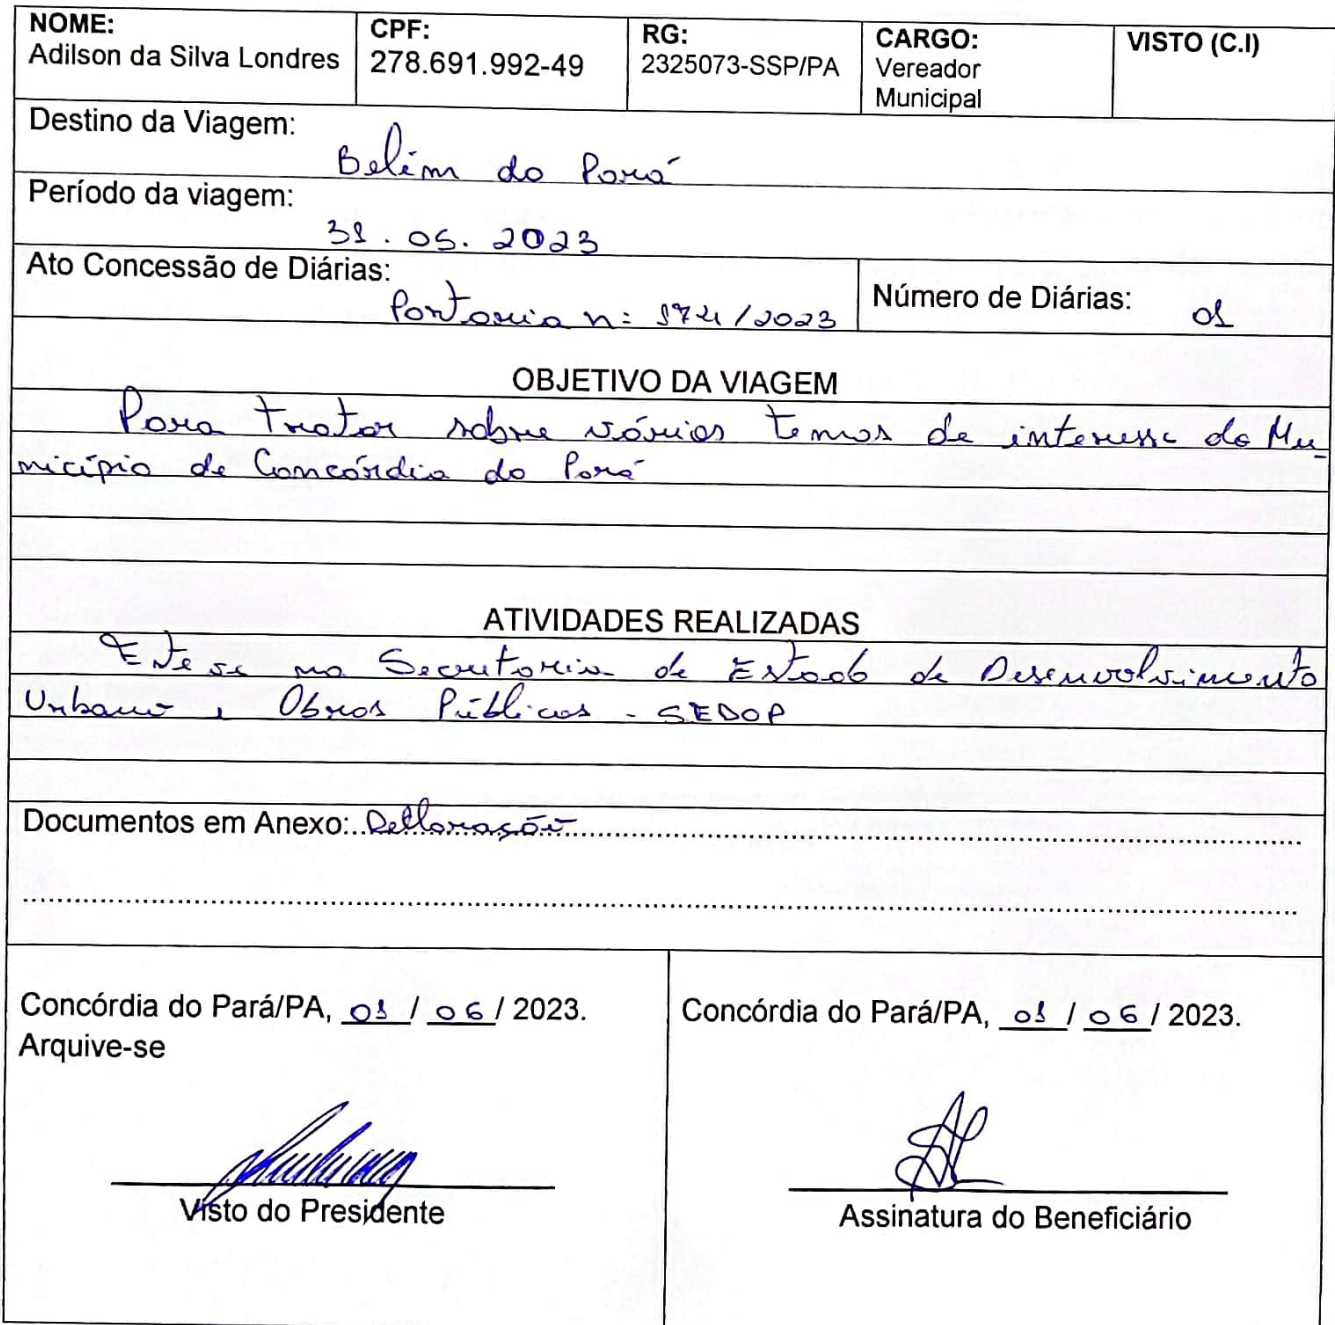 NOME: CPF: RG: CARGO: VISTO (C.I)
Adilson da Silva Londres 278.691.992-49 2325073-SSP/PA Vereador
Municipal
Destino da Viagem:
Belém do Pará
Período da viagem:
31.05.2023
Ato Concessão de Diárias:
Portaria n: 174/2023 Número de Diárias: 01
OBJETIVO DA VIAGEM
Para tratar sobre vários temas de interesse do Mu-
nicípio de Concórdia do Pará
ATIVIDADES REALIZADAS
Este ve na Secretaria de Estado de Desenvolvimento
Urbano e Obras Públicas - SEDOP
Documentos em Anexo: Declaração
Concórdia do Pará/PA, 01 / 06 / 2023. Concórdia do Pará/PA, 01 / 06 / 2023.
Arquive-se
Visto do Presidente Assinatura do Beneficiário